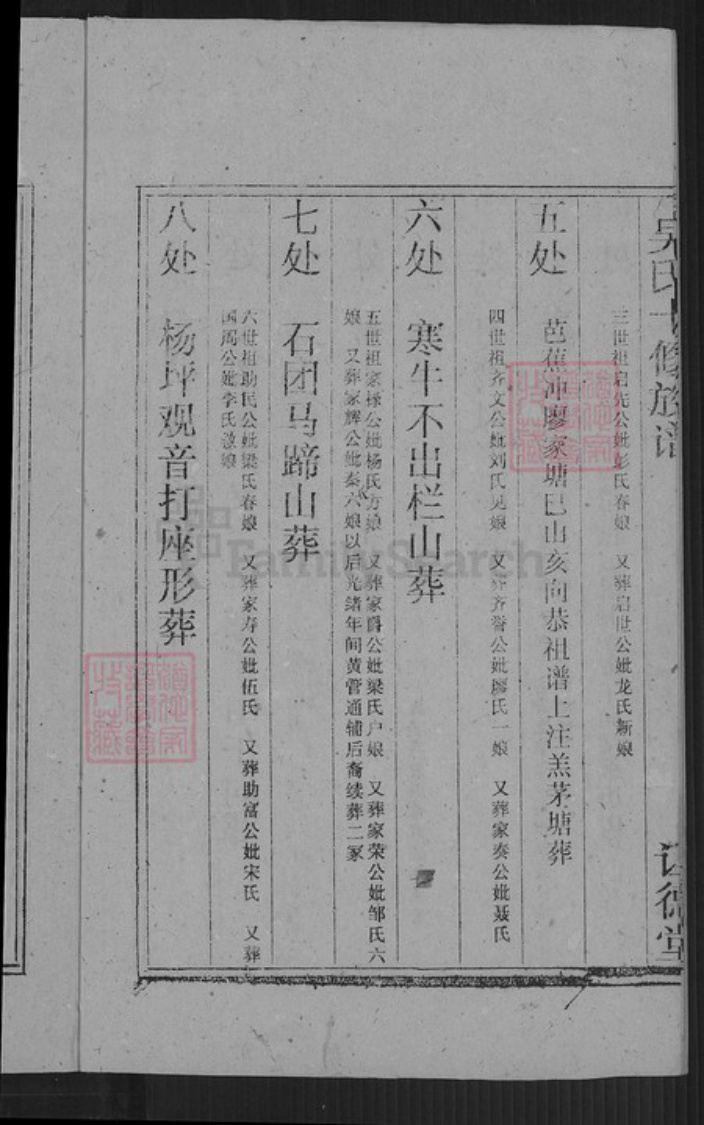 吴氏七修族谱 让德堂
三世祖启先公妣彭氏春娘 又葬启世公妣龙氏新娘
五处 芭蕉冲廖家塘巳山亥向恭祖谱上注羔茅塘葬
四世祖齐文公妣刘氏见娘 又葬齐誉公妣廖氏一娘 又葬家奏公妣聂氏
六处 寒牛不出栏山葬
五世祖家禄公妣杨氏方娘 又葬家爵公妣梁氏户娘 又葬家荣公妣邹氏六
娘 又葬家辉公妣秦六娘以后光绪年间黄管通辅后裔续葬二冢
七处 石团马蹄山葬
六世祖助民公妣梁氏春娘 又葬家寿公妣伍氏 又葬助富公妣宋氏 又葬
国周公妣李氏娘
八处 杨坪观音打座形葬
FamilySearch